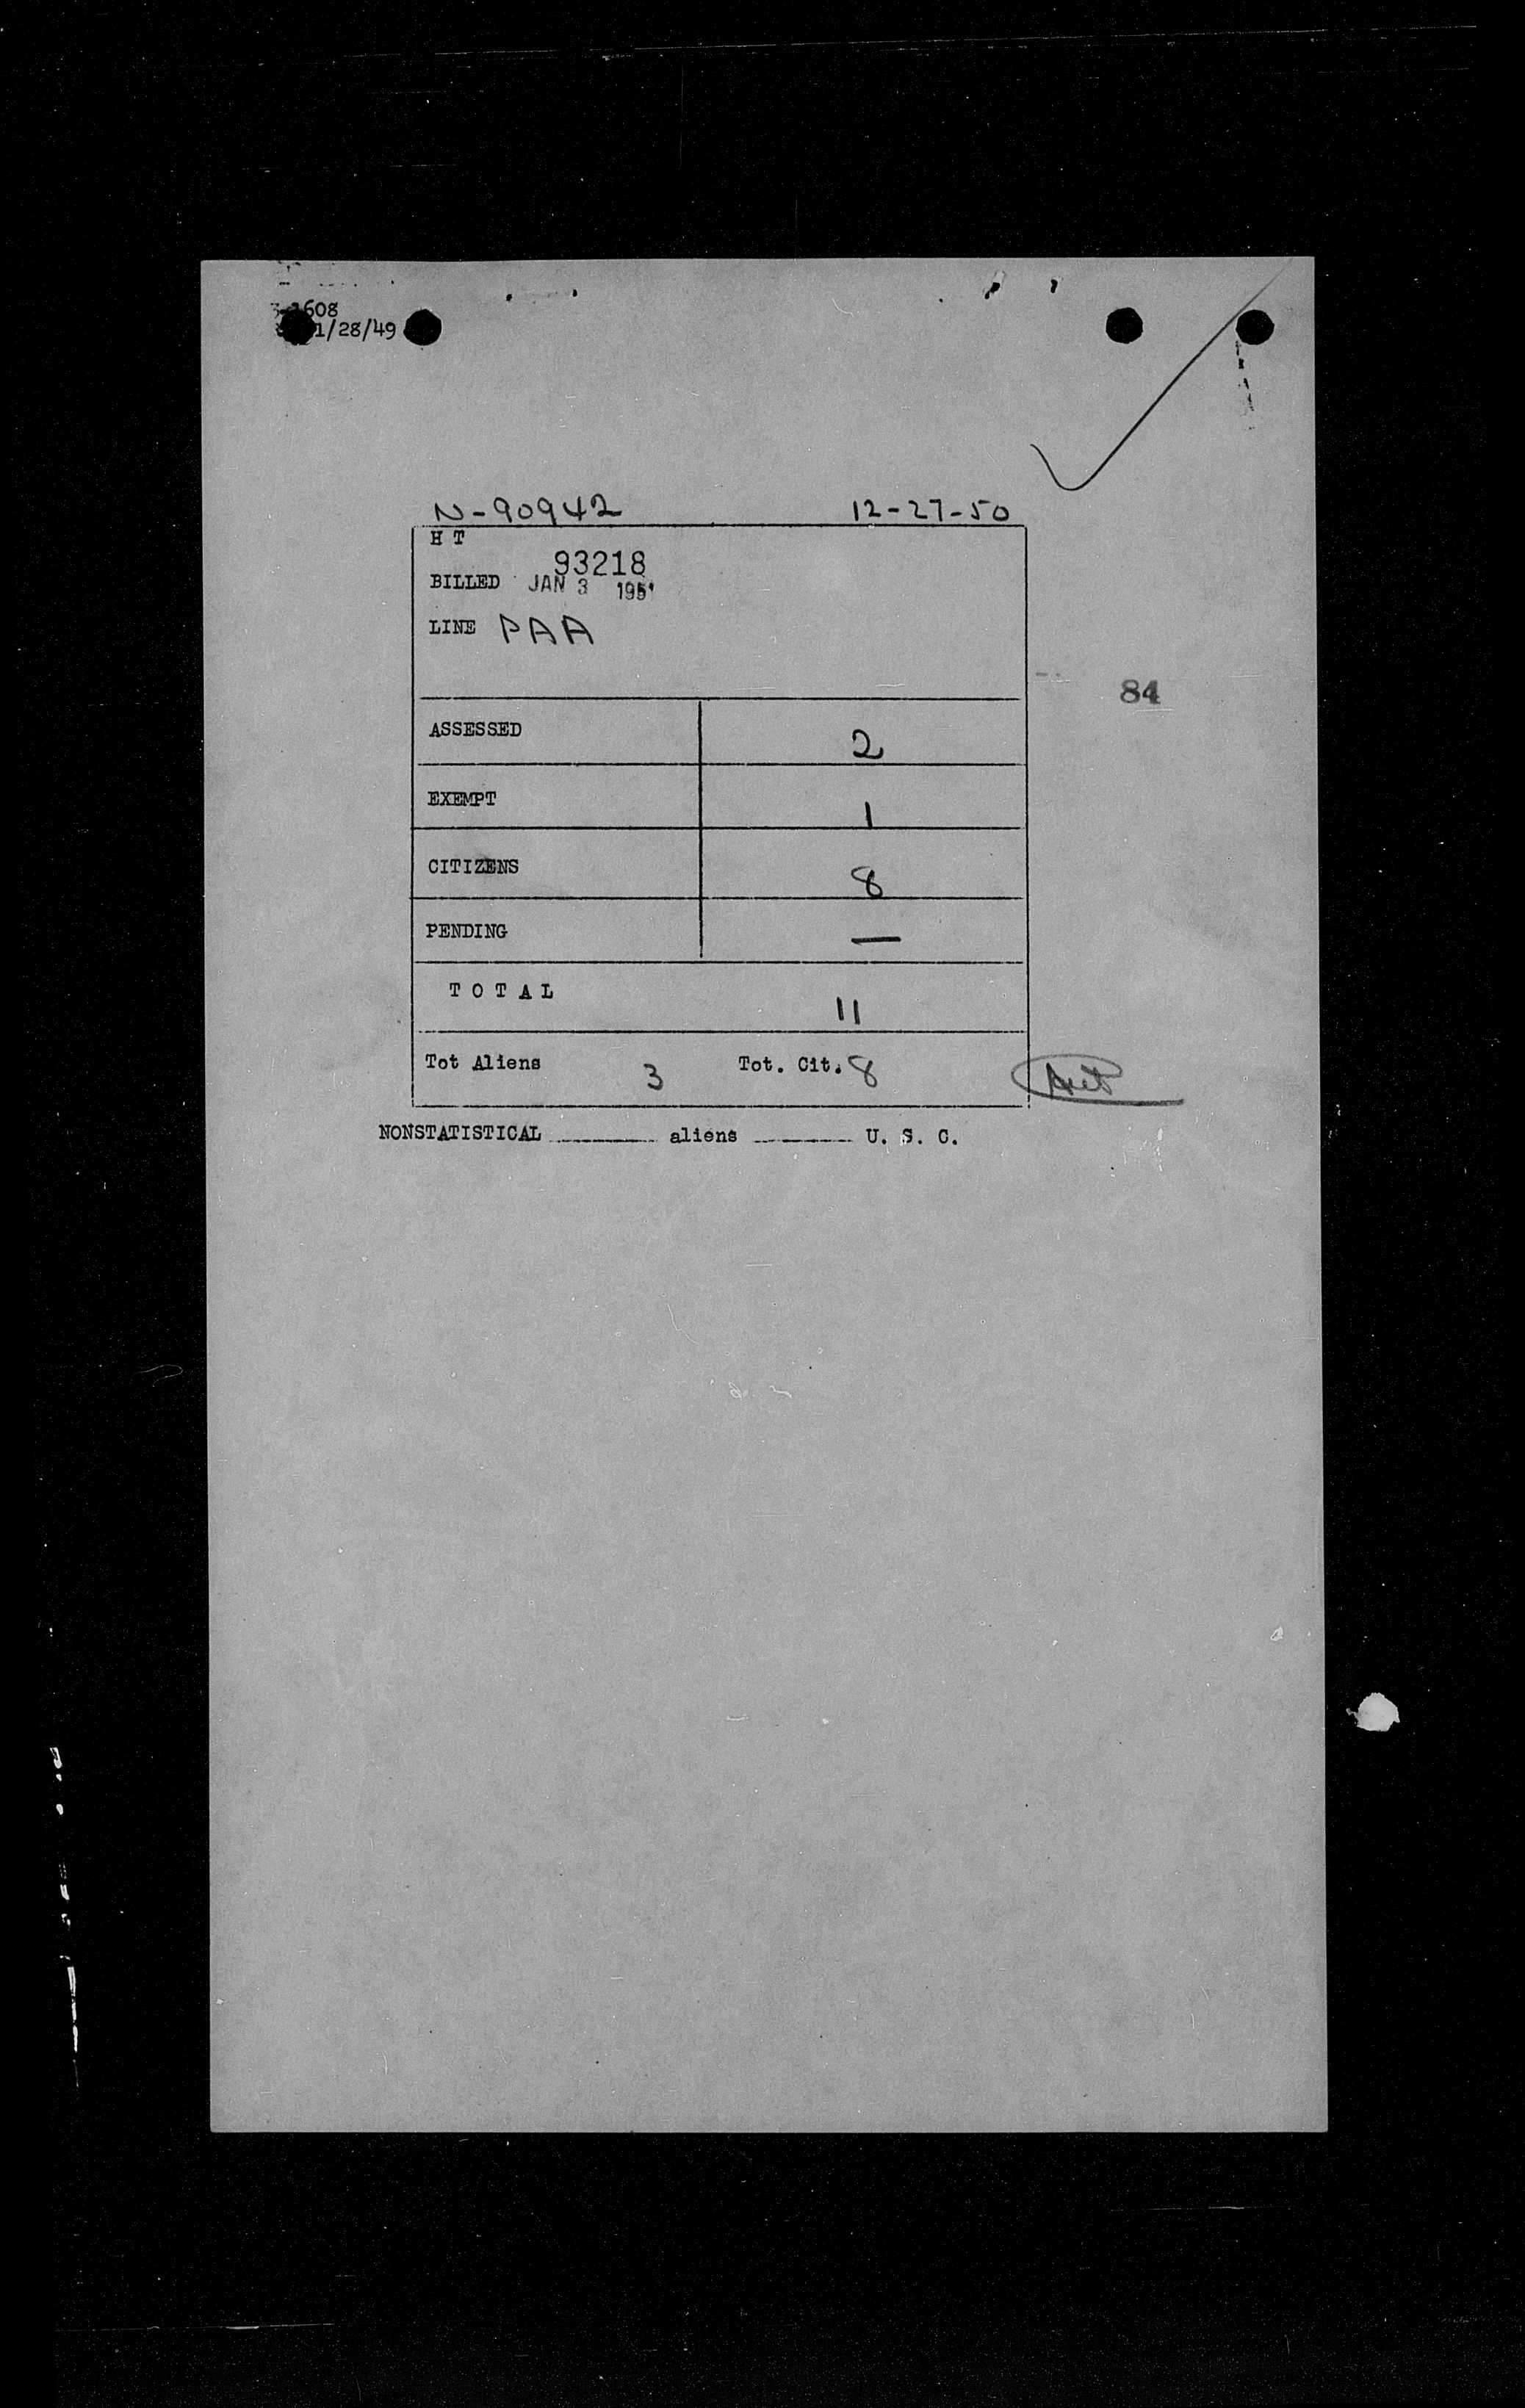 3-1608
1/28/49
N-90942 12-27-50
H T
93218
BILLED JAN 3 1951
LINE PAA
84
ASSESSED 2
EXEMPT 1
CITIZENS 8
PENDING —
T O T A L 11
Tot Aliens 3 Tot. Cit. 8
NONSTATISTICAL ________ aliens ________ U. S. C.